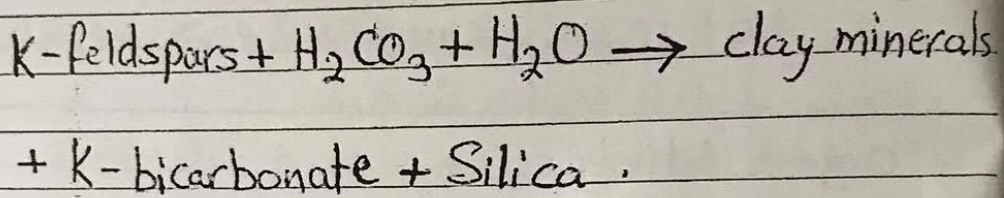 K-feldspars + H₂CO₃ + H₂O → clay minerals
+ K-bicarbonate + Silica.